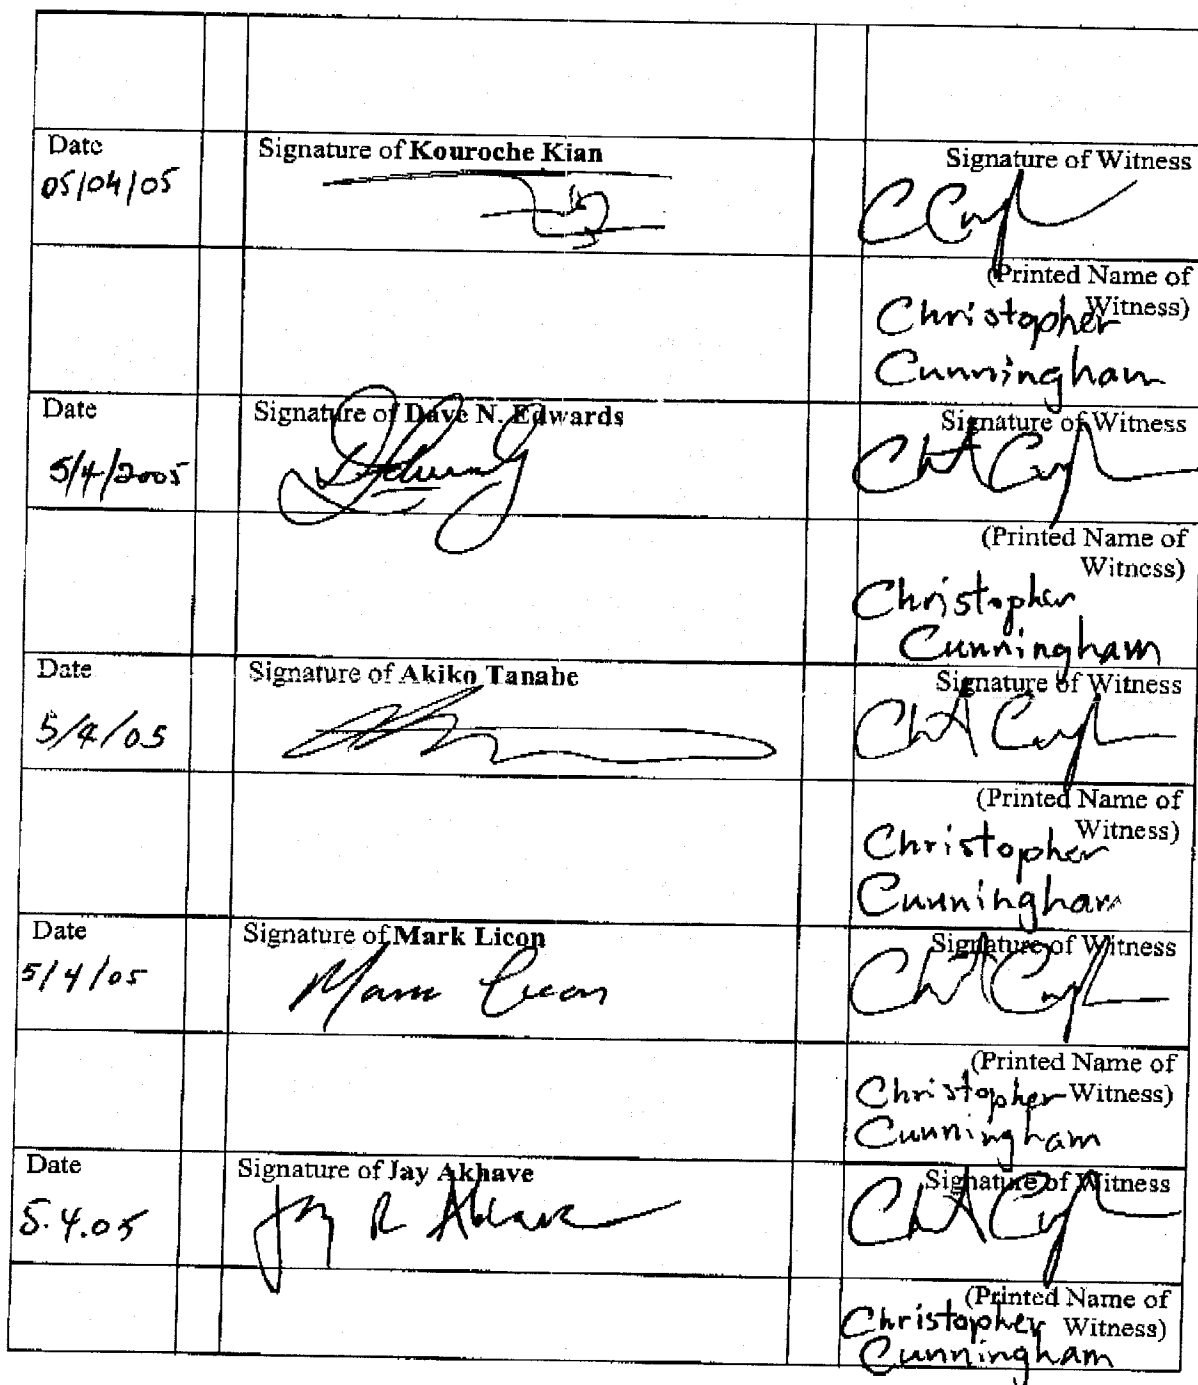 Date
Signature of Kouroche Kian
Signature of Witness
05/04/05
(Printed Name of
Witness)
Christopher
Cunningham
Date
Signature of Dave N. Edwards
Signature of Witness
5/4/2005
(Printed Name of
Witness)
Christopher
Cunningham
Date
Signature of Akiko Tanabe
Signature of Witness
5/4/05
(Printed Name of
Witness)
Christopher
Cunningham
Date
Signature of Mark Licon
Signature of Witness
5/4/05
Mark Licon
(Printed Name of
Witness)
Christopher
Cunningham
Date
Signature of Jay Akhave
Signature of Witness
5.4.05
Jay R Akhave
(Printed Name of
Witness)
Christopher
Cunningham